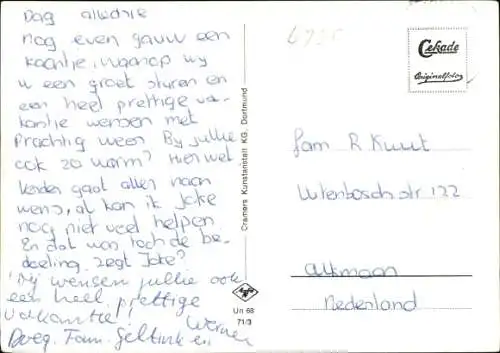 Dag alledrie
nog even gauw een
kaartje, waarop wij
u een groet sturen en
een heel prettige va-
kantie wensen met
Prachtig weer. By jullie
ook zo warm? Hier wel
Verder gaat alles naar
wens, al kan ik Joke
nog niet veel helpen.
En dat was toch de be-
doeling, zegt Joke?
Wy wensen jullie ook
een heel prettige
vakantie!
Werner
Fam. Geltink en
Cramers Kunstanstalt KG, Dortmund
Agfa
Un 68
71/3
Cekade
Originalfotos
fam R Kuut
Uitenboschstr 122
Alkmaar
Nederland